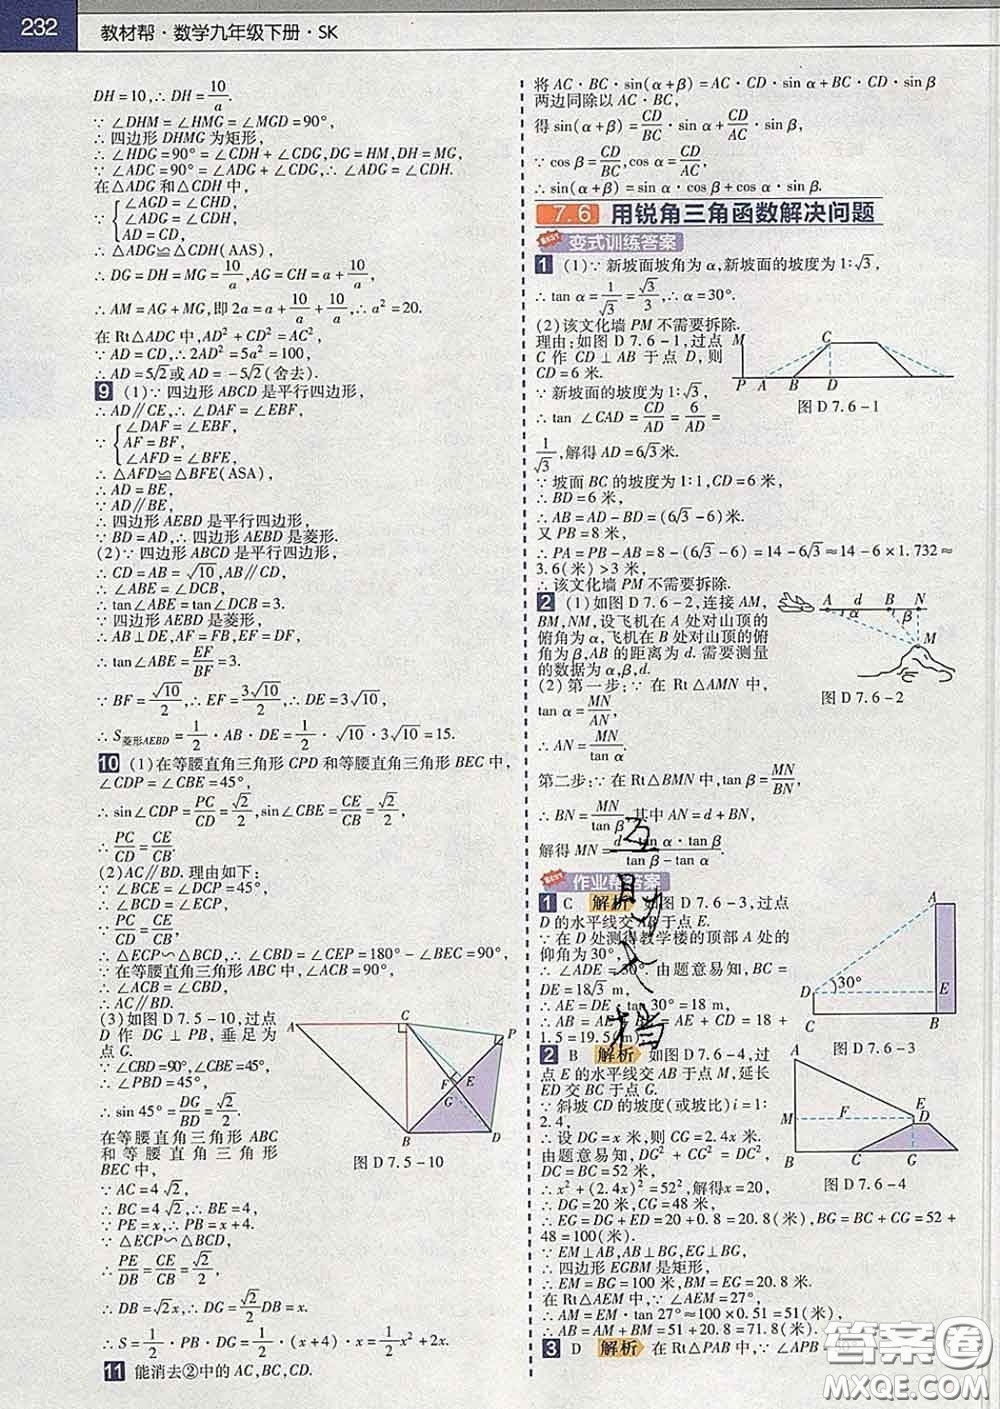 232 教材帮·数学九年级下册·SK
DH=10,∴DH=10/a.
∵∠DHM=∠HMG=∠MGD=90°,
∴四边形DHMG为矩形,
∴∠HDG=90°=∠CDH+∠CDG,DG=HM,DH=MG,
∵∠ADC=90°=∠ADG+∠CDG,∴∠ADG=∠CDH.
在△ADG和△CDH中,
∠AGD=∠CHD,
∵ ∠ADG=∠CDH,
AD=CD,
∴△ADG≌△CDH(AAS),
∴DG=DH=MG=10/a,AG=CH=a+10/a,
∴AM=AG+MG,即2a=a+10/a+10/a,∴a²=20.
在Rt△ADC中,AD²+CD²=AC²,
∵AD=CD,∴2AD²=5a²=100,
∴AD=5√2或AD=-5√2(舍去).
9 (1)∵四边形ABCD是平行四边形,
∴AD∥CE,∴∠DAF=∠EBF,
∠DAF=∠EBF,
∵ AF=BF,
∠AFD=∠EFB,
∴△AFD≌△BFE(ASA),
∴AD=BE,
∵AD∥BE,
∴四边形AEBD是平行四边形,
∵BD=AD,∴四边形AEBD是菱形.
(2)∵四边形ABCD是平行四边形,
∴CD=AB=√10,AB∥CD,
∴∠ABE=∠DCB,
∴tan∠ABE=tan∠DCB=3.
∵四边形AEBD是菱形,
∴AB⊥DE,AF=FB,EF=DF,
∴tan∠ABE=EF/BF=3.
∵BF=√10/2,∴EF=3√10/2,∴DE=3√10,
∴S菱形AEBD=1/2·AB·DE=1/2·√10·3√10=15.
10 (1)在等腰直角三角形CPD和等腰直角三角形BEC中,
∠CDP=∠CBE=45°,
∴sin∠CDP=PC/CD=√2/2,sin∠CBE=CE/CB=√2/2,
∴PC/CD=CE/CB.
(2)AC∥BD.理由如下:
∵∠BCE=∠DCP=45°,
∴∠BCD=∠ECP,
∵PC/CD=CE/CB,
∴△ECP∽△BCD,∴∠CBD=∠CEP=180°-∠BEC=90°,
∵在等腰直角三角形ABC中,∠ACB=90°,
∴∠ACB=∠CBD,
∴AC∥BD.
(3)如图D7.5-10,过点
D作DG⊥PB,垂足为
点G.
∵∠CBD=90°,∠CBE=45°,
∴∠PBD=45°,
∴sin 45°=DG/BD=√2/2.
在等腰直角三角形ABC
和等腰直角三角形
BEC中,
∵AC=4√2,
∴BC=4√2,∴BE=4,
∵PE=x,∴PB=x+4.
∵△ECP∽△BCD,
∴PE/DB=CE/CB=√2/2,
∴DB=√2x,∴DG=√2/2DB=x.
∴S=1/2·PB·DG=1/2·(x+4)·x=1/2x²+2x.
11 能消去②中的AC,BC,CD.
A C P F E G B D
图D7.5-10
将AC·BC·sin(α+β)=AC·CD·sin α+BC·CD·sin β
两边同除以AC·BC,
得sin(α+β)=CD/BC·sin α+CD/AC·sin β,
∵cos β=CD/BC,cos α=CD/AC,
∴sin(α+β)=sin α·cos β+cos α·sin β.
7.6 用锐角三角函数解决问题
变式训练答案
1 (1)∵新坡面坡角为α,新坡面的坡度为1∶√3,
∴tan α=1/√3=√3/3,∴α=30°.
(2)该文化墙PM不需要拆除.
理由:如图D7.6-1,过点
C作CD⊥AB于点D,则
CD=6米.
∵新坡面的坡度为1∶√3,
∴tan∠CAD=CD/AD=6/AD=
1/√3,解得AD=6√3米.
∵坡面BC的坡度为1∶1,CD=6米,
∴BD=6米,
∴AB=AD-BD=(6√3-6)米.
又PB=8米,
∴PA=PB-AB=8-(6√3-6)=14-6√3≈14-6×1.732≈
3.6(米)>3米,
∴该文化墙PM不需要拆除.
M C P A B D
图D7.6-1
2 (1)如图D7.6-2,连接AM,
BM,NM,设飞机在A处对山顶的
俯角为α,飞机在B处对山顶的俯
角为β,AB的距离为d.需要测量
的数据为α,β,d.
(2)第一步:∵在Rt△AMN中,
tan α=MN/AN,
∴AN=MN/tan α.
第二步:∵在Rt△BMN中,tan β=MN/BN,
∴BN=MN/tan β,其中AN=d+BN,
解得MN=d·tan α·tan β/(tan β-tan α).
A d B N α β M
图D7.6-2
作业帮答案
1 C 解析 如图D7.6-3,过点
D的水平线交AB于点E.
∵在D处测得教学楼的顶部A处的
仰角为30°,
∴∠ADE=30°.由题意易知,BC=
DE=18√3 m,
∴AE=DE·tan 30°=18 m,
∴AB=AE+BE=AE+CD=18+
1.5=19.5(m).
A D 30° E C B
图D7.6-3
2 B 解析 如图D7.6-4,过
点E的水平线交AB于点M,延长
ED交BC于点G.
∵斜坡CD的坡度(或坡比)i=1∶
2.4,
∴设DG=x米,则CG=2.4x米.
由题意易知,DG²+CG²=DC²,
DC=BC=52米,
∴x²+(2.4x)²=52²,解得x=20,
∴DG=20米,CG=48米,
∴EG=DG+ED=20+0.8=20.8(米),BG=BC+CG=52+
48=100(米).
∵EM⊥AB,AB⊥BG,EG⊥BG,
∴四边形EGBM是矩形,
∴EM=BG=100米,BM=EG=20.8米.
在Rt△AEM中,∵∠AEM=27°,
∴AM=EM·tan 27°≈100×0.51=51(米),
∴AB=AM+BM=51+20.8=71.8(米).
A M F E D B C G
图D7.6-4
3 D 解析 在Rt△PAB中,∵∠APB=
答案圈
MXQE.COM